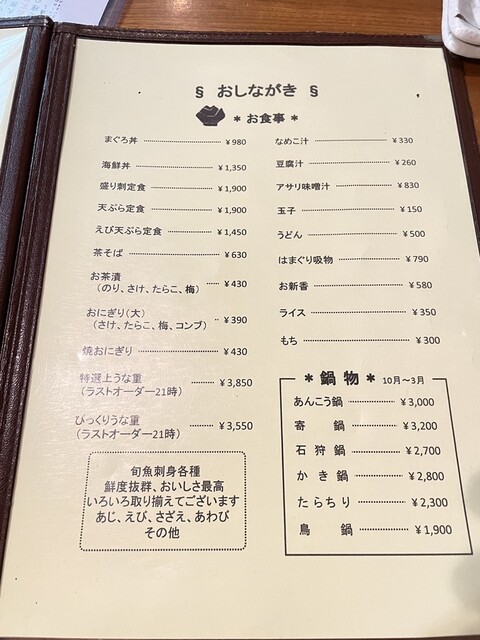 § おしながき §
* お食事 *
まぐろ丼 ¥980
海鮮丼 ¥1,350
盛り刺定食 ¥1,900
天ぷら定食 ¥1,900
えび天ぷら定食 ¥1,450
茶そば ¥630
お茶漬
(のり、さけ、たらこ、梅) ¥430
おにぎり(大)
(さけ、たらこ、梅、コンブ) ¥390
焼おにぎり ¥430
特選上うな重
(ラストオーダー21時) ¥3,850
びっくりうな重
(ラストオーダー21時) ¥3,550
旬魚刺身各種
鮮度抜群、おいしさ最高
いろいろ取り揃えてございます
あじ、えび、さざえ、あわび
その他
なめこ汁 ¥330
豆腐汁 ¥260
アサリ味噌汁 ¥830
玉子 ¥150
うどん ¥500
はまぐり吸物 ¥790
お新香 ¥580
ライス ¥350
もち ¥300
* 鍋物 * 10月~3月
あんこう鍋 ¥3,000
寄鍋 ¥3,200
石狩鍋 ¥2,700
かき鍋 ¥2,800
たらちり ¥2,300
鳥鍋 ¥1,900